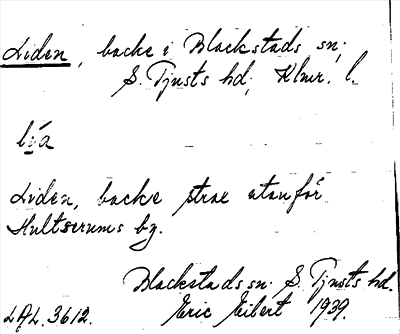 Liden, backe i Blackstads sn;
S. Tjusts hd; Klmr. l.
Liden, backe strax utanför
Hultserums by.
Blackstads sn. S. Tjusts hd.
LAL. 3612. Eric Eibert 1939.